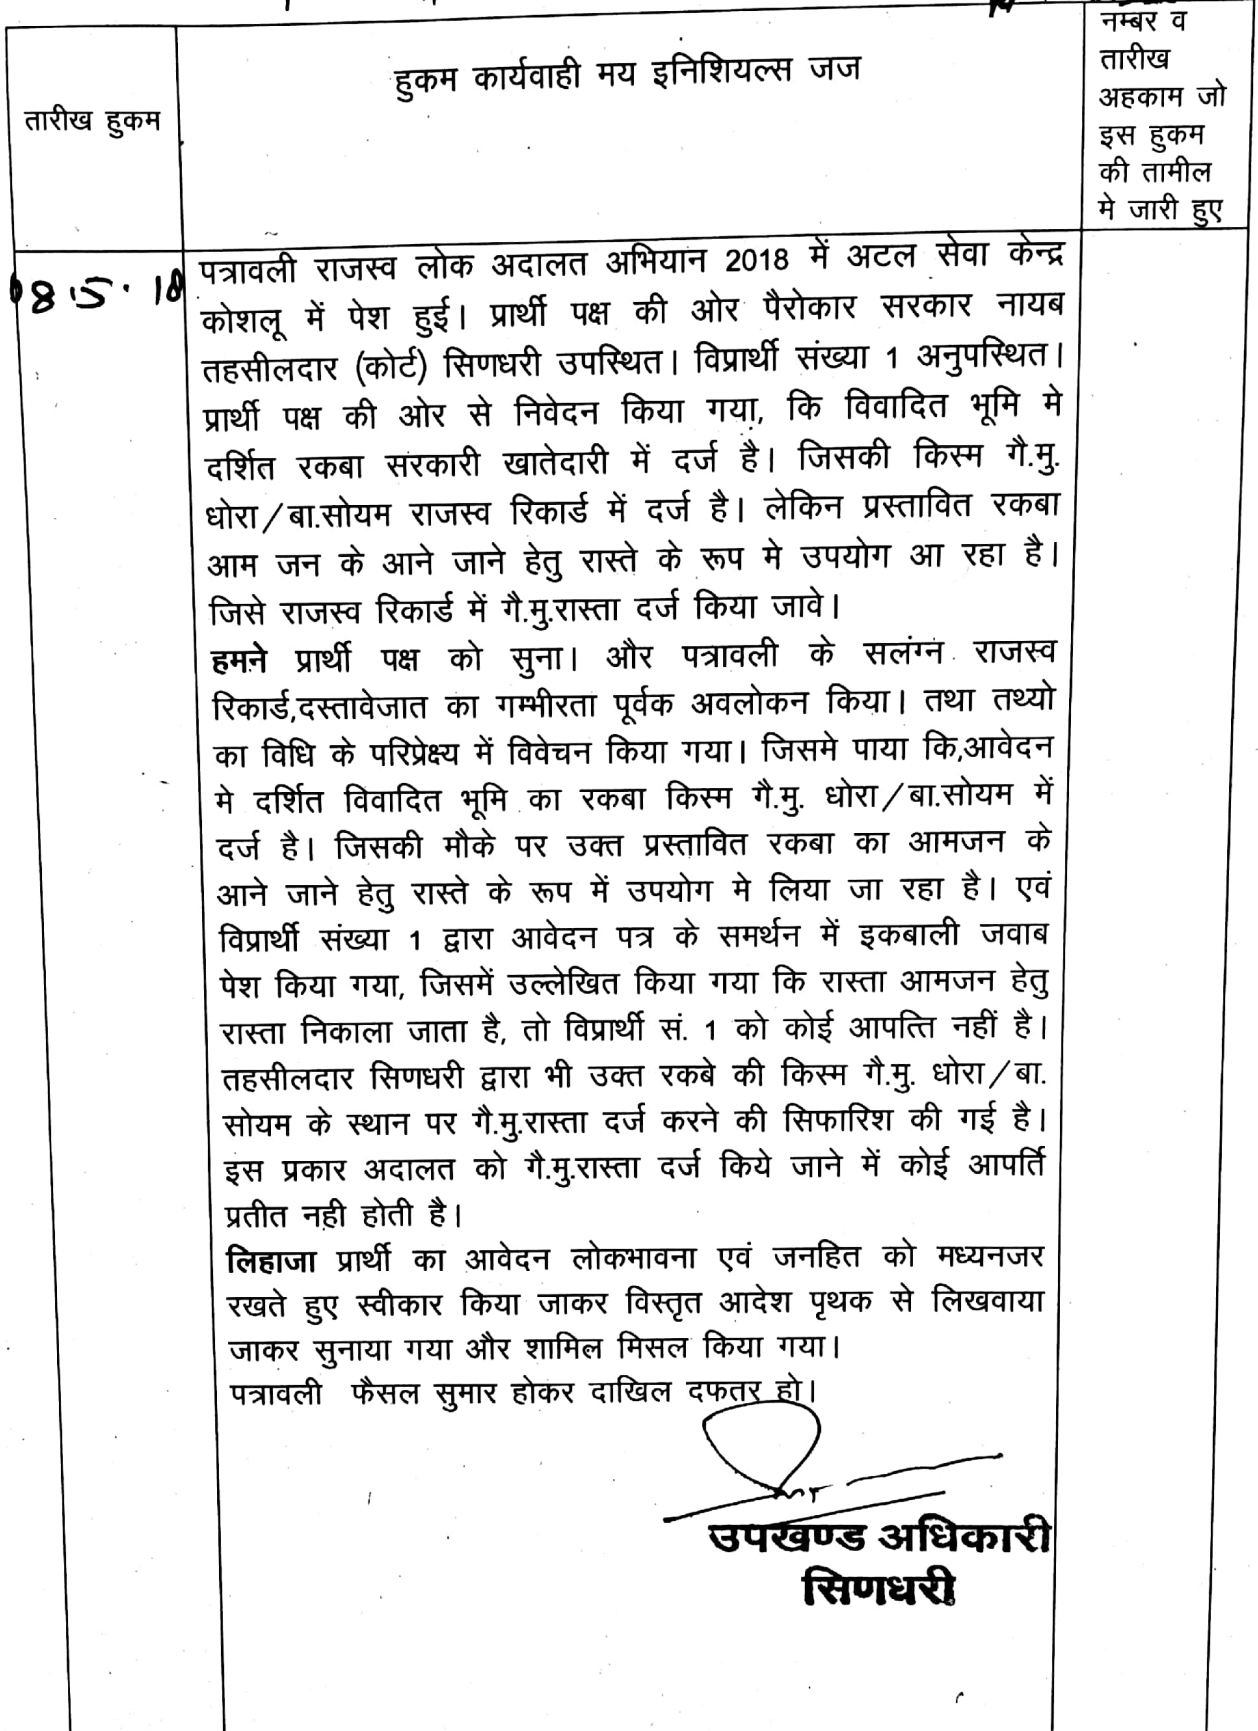 तारीख हुकम
हुकम कार्यवाही मय इनिशियल्स जज
नम्बर व
तारीख
अहकाम जो
इस हुकम
की तामील
मे जारी हुए
08.5.18
पत्रावली राजस्व लोक अदालत अभियान 2018 में अटल सेवा केन्द्र
कोशलू में पेश हुई। प्रार्थी पक्ष की ओर पैरोकार सरकार नायब
तहसीलदार (कोर्ट) सिणधरी उपस्थित। विप्रार्थी संख्या 1 अनुपस्थित।
प्रार्थी पक्ष की ओर से निवेदन किया गया, कि विवादित भूमि मे
दर्शित रकबा सरकारी खातेदारी में दर्ज है। जिसकी किस्म गै.मु.
धोरा/बा.सोयम राजस्व रिकार्ड में दर्ज है। लेकिन प्रस्तावित रकबा
आम जन के आने जाने हेतु रास्ते के रूप मे उपयोग आ रहा है।
जिसे राजस्व रिकार्ड में गै.मु.रास्ता दर्ज किया जावे।
हमने प्रार्थी पक्ष को सुना। और पत्रावली के सलंग्न राजस्व
रिकार्ड,दस्तावेजात का गम्भीरता पूर्वक अवलोकन किया। तथा तथ्यो
का विधि के परिप्रेक्ष्य में विवेचन किया गया। जिसमे पाया कि,आवेदन
मे दर्शित विवादित भूमि का रकबा किस्म गै.मु. धोरा/बा.सोयम में
दर्ज है। जिसकी मौके पर उक्त प्रस्तावित रकबा का आमजन के
आने जाने हेतु रास्ते के रूप में उपयोग मे लिया जा रहा है। एवं
विप्रार्थी संख्या 1 द्वारा आवेदन पत्र के समर्थन में इकबाली जवाब
पेश किया गया, जिसमें उल्लेखित किया गया कि रास्ता आमजन हेतु
रास्ता निकाला जाता है, तो विप्रार्थी सं. 1 को कोई आपत्ति नहीं है।
तहसीलदार सिणधरी द्वारा भी उक्त रकबे की किस्म गै.मु. धोरा/बा.
सोयम के स्थान पर गै.मु.रास्ता दर्ज करने की सिफारिश की गई है।
इस प्रकार अदालत को गै.मु.रास्ता दर्ज किये जाने में कोई आपर्ति
प्रतीत नही होती है।
लिहाजा प्रार्थी का आवेदन लोकभावना एवं जनहित को मध्यनजर
रखते हुए स्वीकार किया जाकर विस्तृत आदेश पृथक से लिखवाया
जाकर सुनाया गया और शामिल मिसल किया गया।
पत्रावली फैसल सुमार होकर दाखिल दफतर हो।
उपखण्ड अधिकारी
सिणधरी